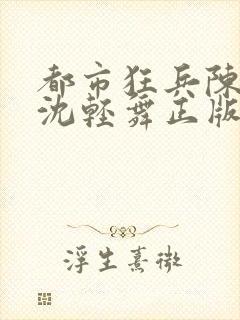 都市狂兵陳
沈輕舞正版
浮生熹微